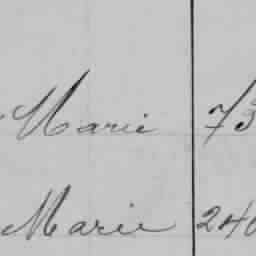 Marie 73
Marie 240